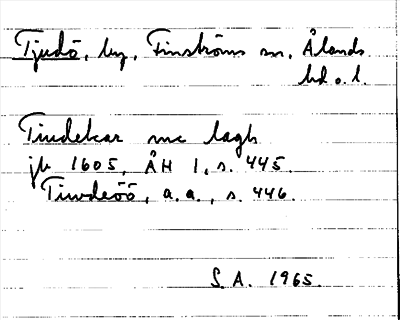 Tjudö, by, Finströms sn, Ålands
hd o. l.
Tiudekar mc lagh
jb 1605, ÅH 1, s. 445.
Tiwdeöö, a.a., s. 446.
S.A. 1965.